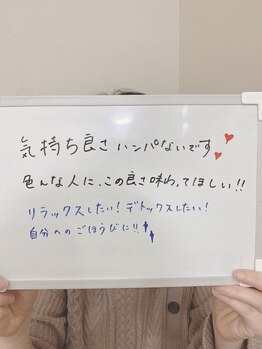 気持ち良さハンパないです
色んな人に、この良さ味わってほしい!!
リラックスしたい!デトックスしたい!
自分へのごほうびに!!